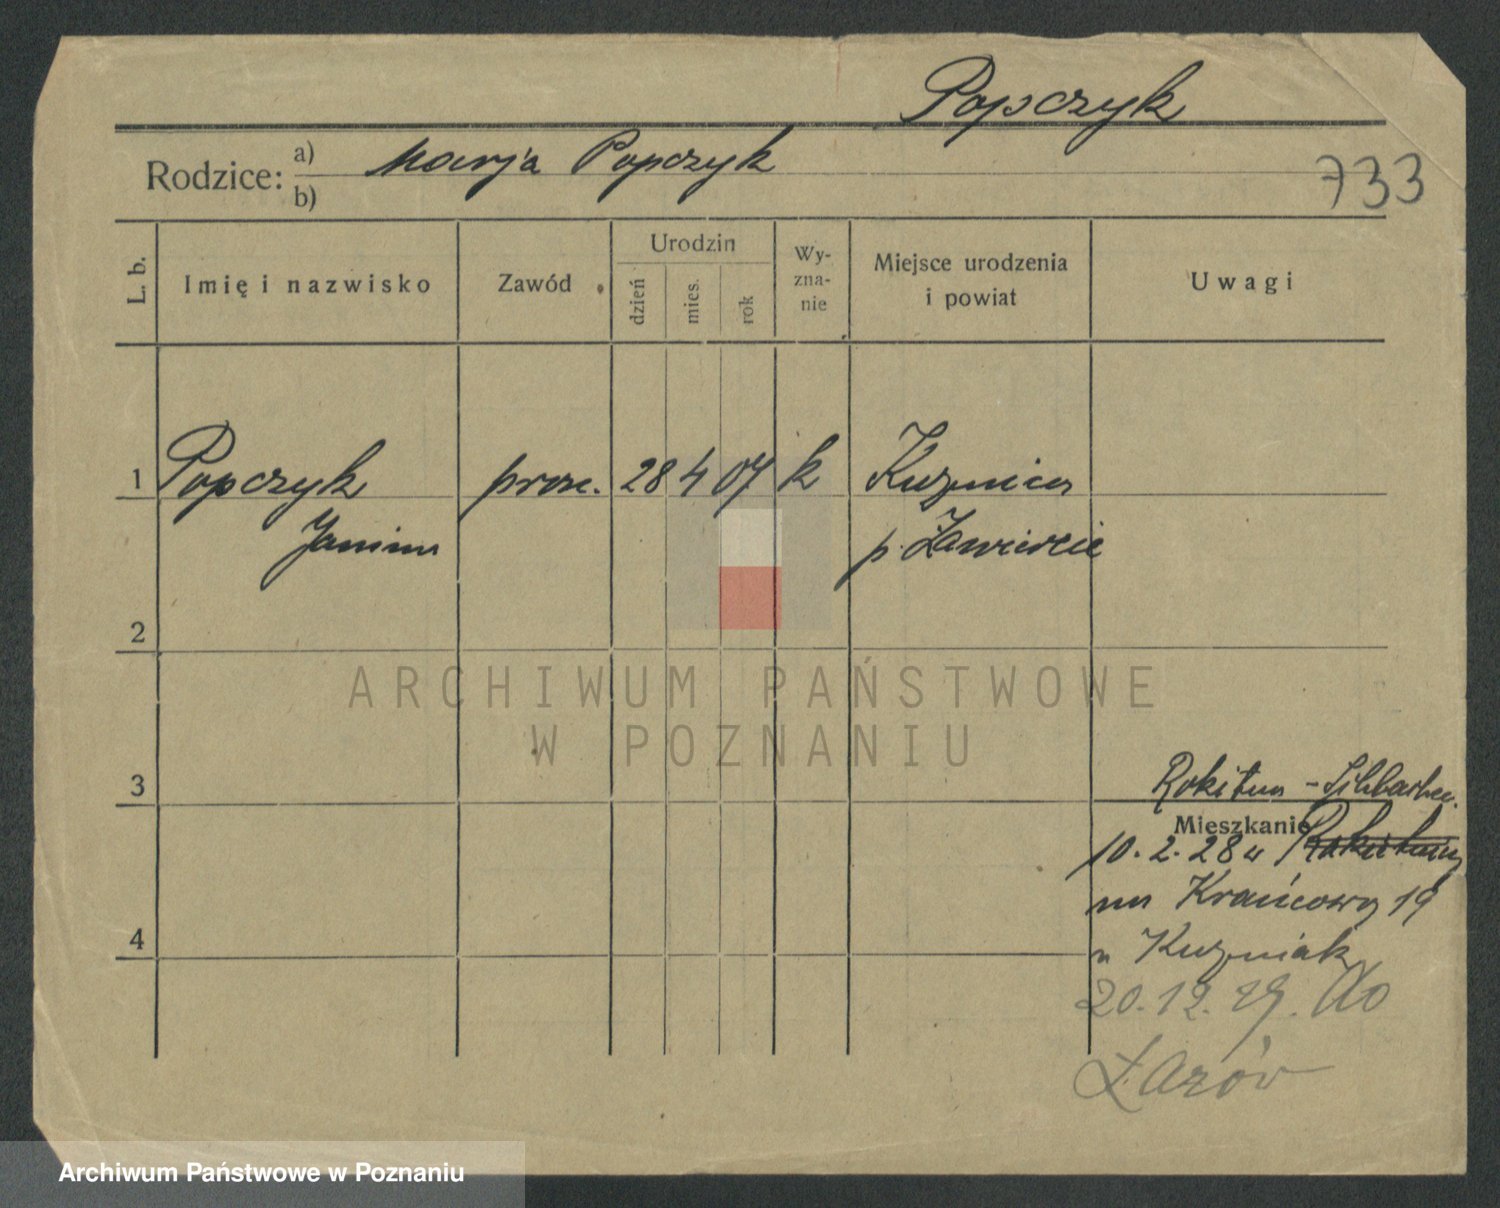 Popczyk
Rodzice: a) Marja Popczyk
b)
733
L. b. Imię i nazwisko Zawód Urodzin dzień mies. rok Wy-zna-nie Miejsce urodzenia i powiat Uwagi
1 Popczyk prac. 28 4 07 k Kuźnica
Janina p. Zawiercie
2
ARCHIWUM PAŃSTWOWE
W POZNANIU
3
Rokitna -
Mieszkanie
10. 2. 28 u
na Krańcowy 19
4 u Kuźniak
20.12.29. do
Łazów
Archiwum Państwowe w Poznaniu